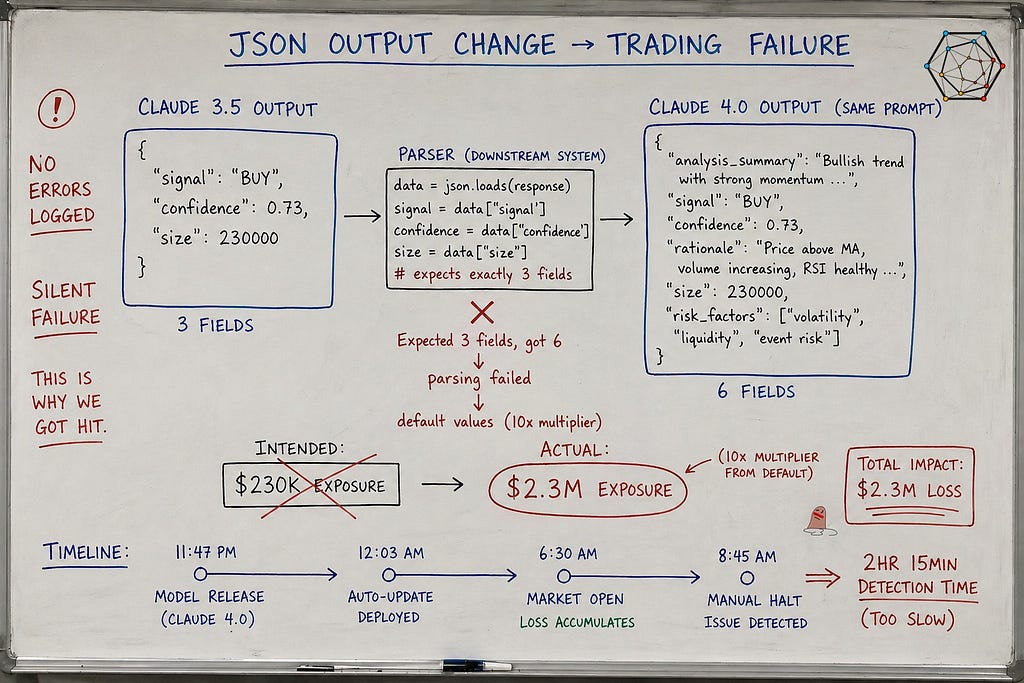 JSON OUTPUT CHANGE → TRADING FAILURE
!
NO
ERRORS
LOGGED
SILENT
FAILURE
THIS IS
WHY WE
GOT HIT.
CLAUDE 3.5 OUTPUT
{
"signal": "BUY",
"confidence": 0.73,
"size": 230000
}
3 FIELDS
PARSER (DOWNSTREAM SYSTEM)
data = json.loads(response)
signal = data["signal']
confidence = data["confidence']
size = data["size"]
# expects exactly 3 fields
Expected 3 fields, got 6
↓
parsing failed
↓
default values (10x multiplier)
CLAUDE 4.0 OUTPUT (SAME PROMPT)
{
"analysis_summary": "Bullish trend
with strong momentum ...",
"signal": "BUY",
"confidence": 0.73,
"rationale": "Price above MA,
volume increasing, RSI healthy ...",
"size": 230000,
"risk_factors": ["volatility",
"liquidity", "event risk"]
}
6 FIELDS
INTENDED:
$230K EXPOSURE
ACTUAL:
$2.3M EXPOSURE
(10X MULTIPLIER
FROM DEFAULT)
TOTAL IMPACT:
$2.3M LOSS
TIMELINE:
11:47 PM
MODEL RELEASE
(CLAUDE 4.0)
12:03 AM
AUTO-UPDATE
DEPLOYED
6:30 AM
MARKET OPEN
LOSS ACCUMULATES
8:45 AM
MANUAL HALT
ISSUE DETECTED
2HR 15MIN
DETECTION TIME
(TOO SLOW)